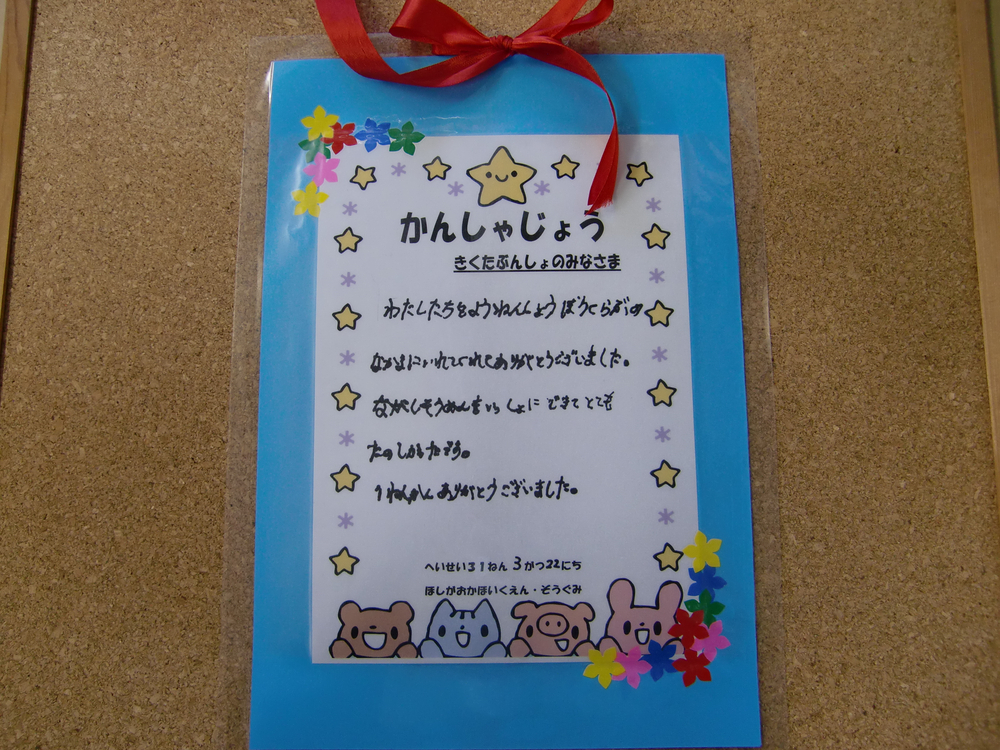 かんしゃじょう
きくたぶんしょのみなさま
わたしたちをようねんしょうぼうくらぶの
なかまにいれてくれてありがとうございました。
ながしそうめんもいっしょにできてとても
たのしかったです。
1ねんかんありがとうございました。
へいせい31ねん3がつ22にち
ほしがおかほいくえん・ぞうぐみ